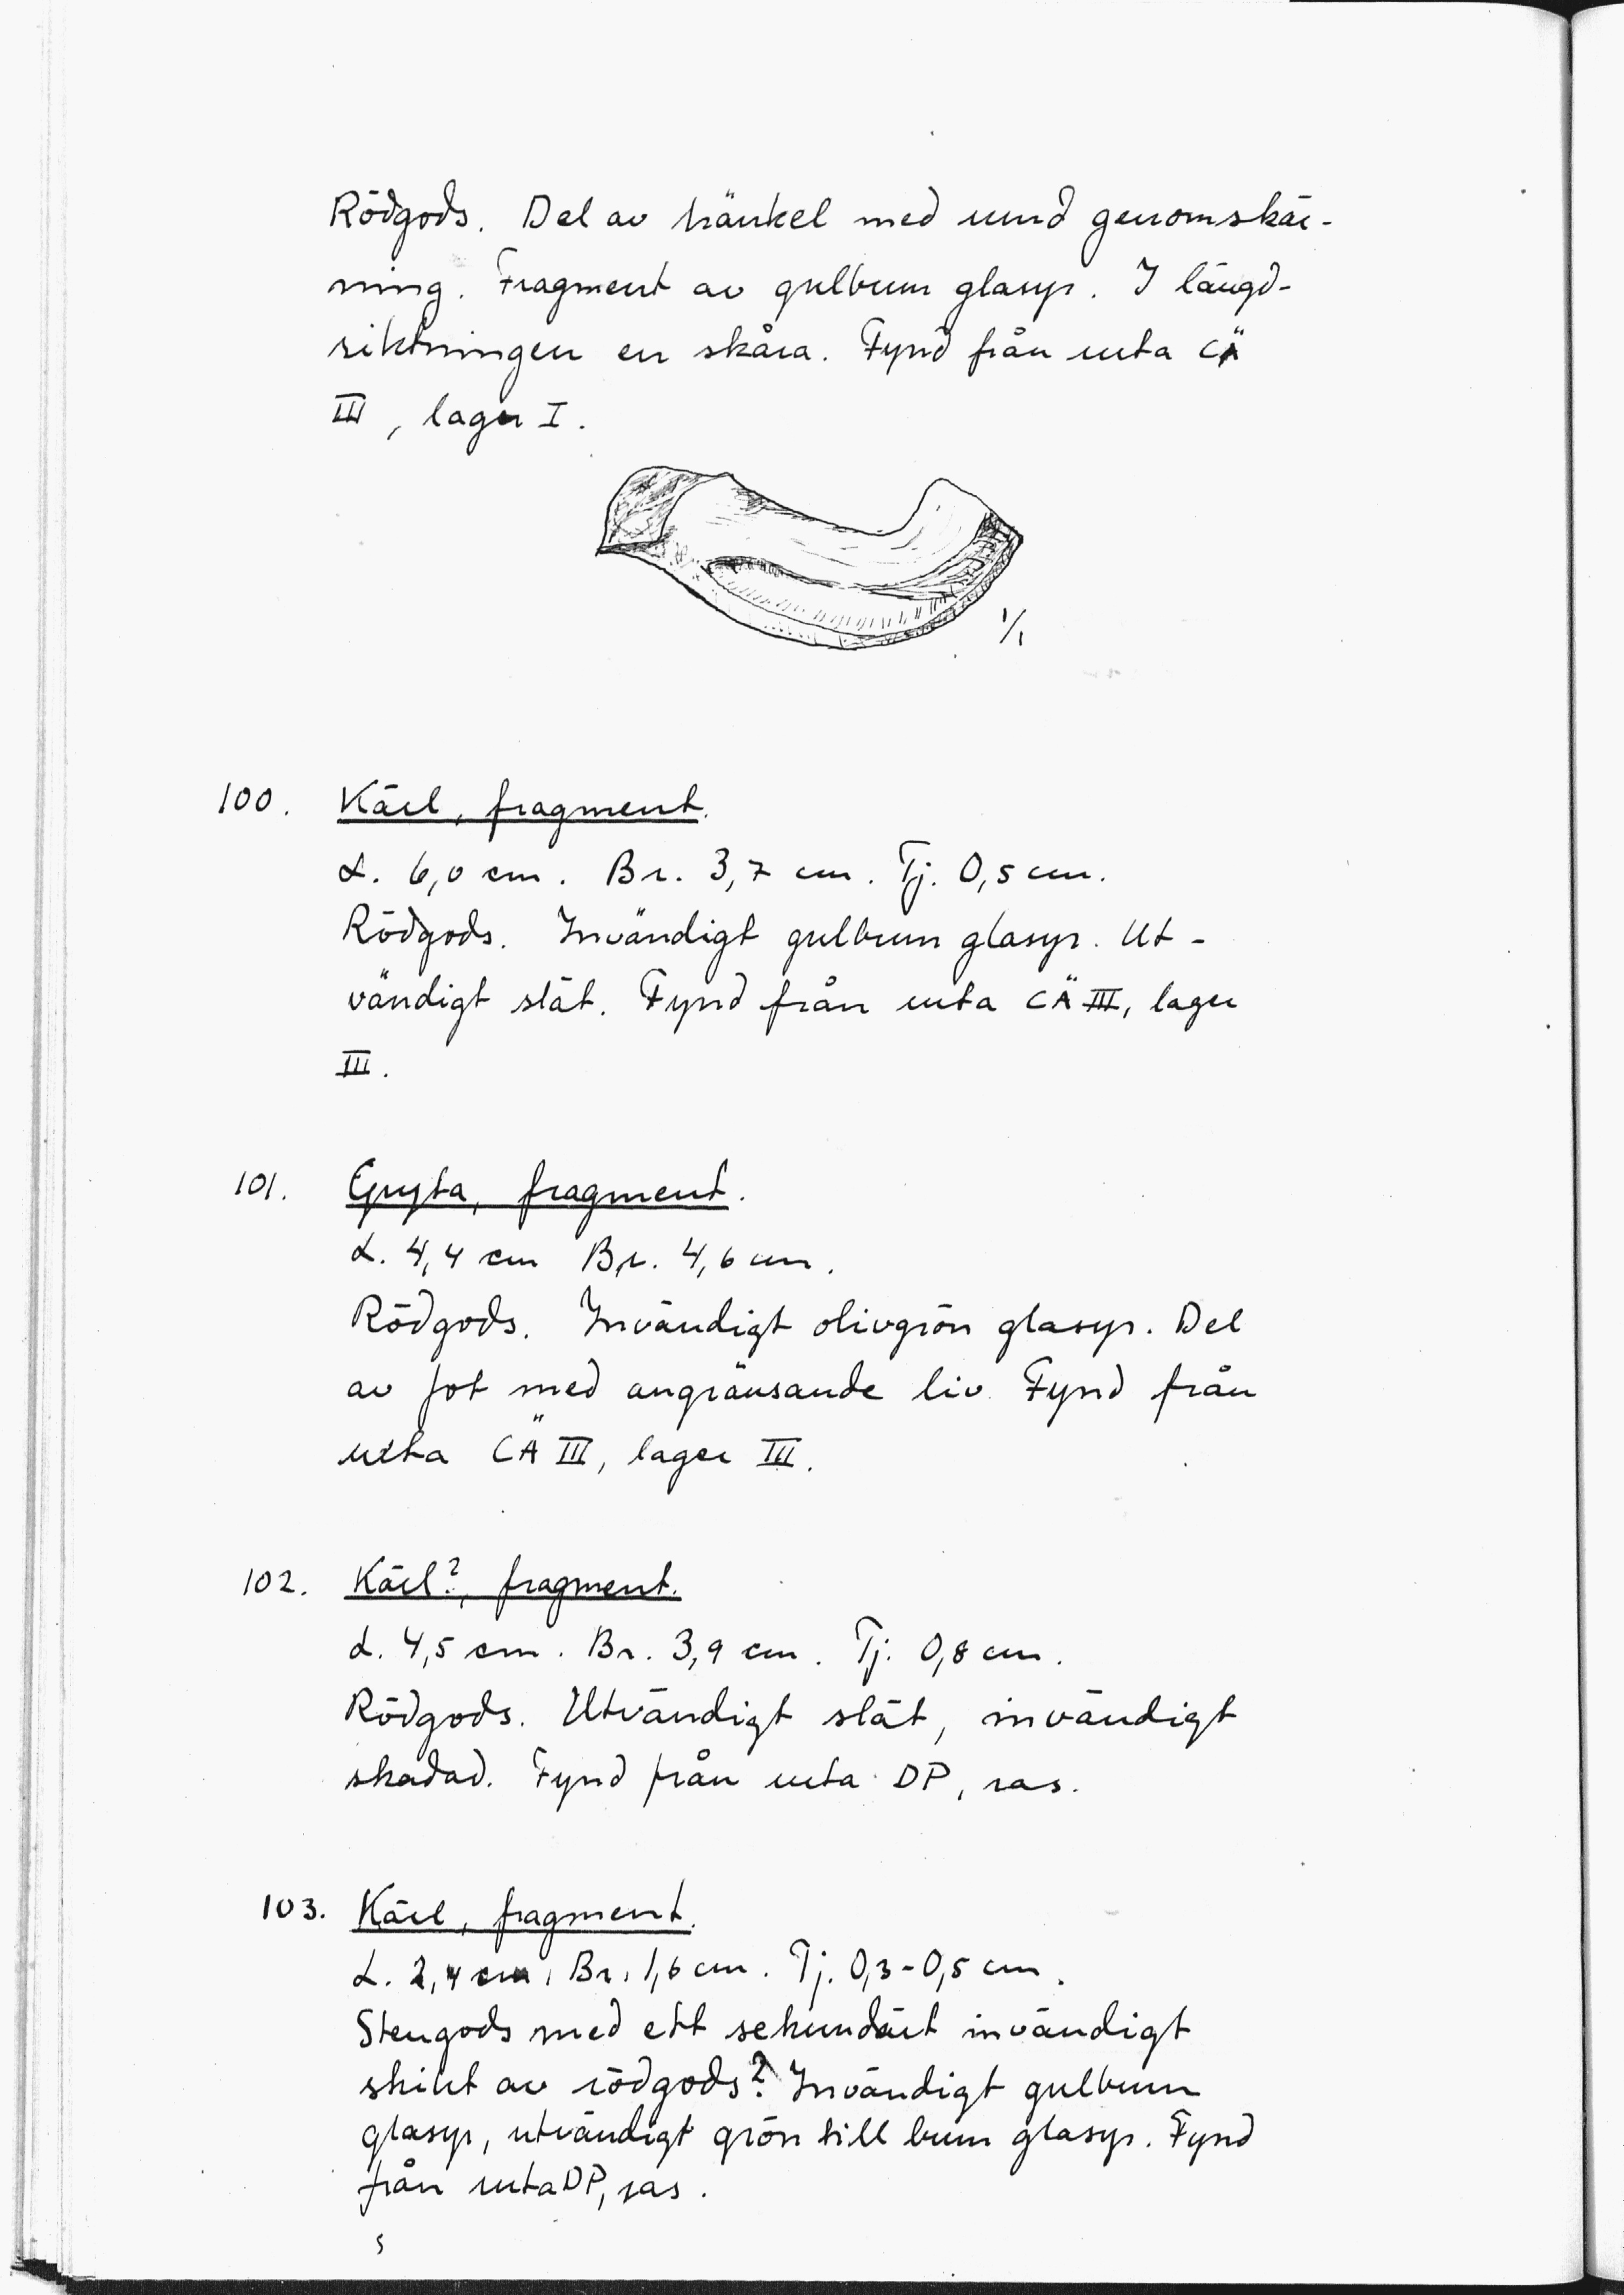 Rödgods. Del av hänkel med rund genomskär-
ning. Fragment av gulbrun glasyr. I längd-
riktningen en skåra. Fynd från ruta CÄ
III, lager I.
1/1
100. Kärl, fragment.
L. 6,0 cm. Br. 3,7 cm. Tj. 0,5 cm.
Rödgods. Invändigt gulbrun glasyr. Ut-
vändigt slät. Fynd från ruta CÄ III, lager
III.
101. Gryta, fragment.
L. 4,4 cm Br. 4,6 cm.
Rödgods. Invändigt olivgrön glasyr. Del
av fot med angränsande liv. Fynd från
ruta CÄ III, lager III.
102. Kärl?, fragment.
L. 4,5 cm. Br. 3,9 cm. Tj. 0,8 cm.
Rödgods. Utvändigt slät, invändigt
skadad. Fynd från ruta DP, ras.
103. Kärl, fragment.
L. 2,4 cm. Br. 1,6 cm. Tj. 0,3-0,5 cm.
Stengods med ett sekundärt invändigt
skikt av rödgods? Invändigt gulbrun
glasyr, utvändigt grön till brun glasyr. Fynd
från ruta DP, ras.